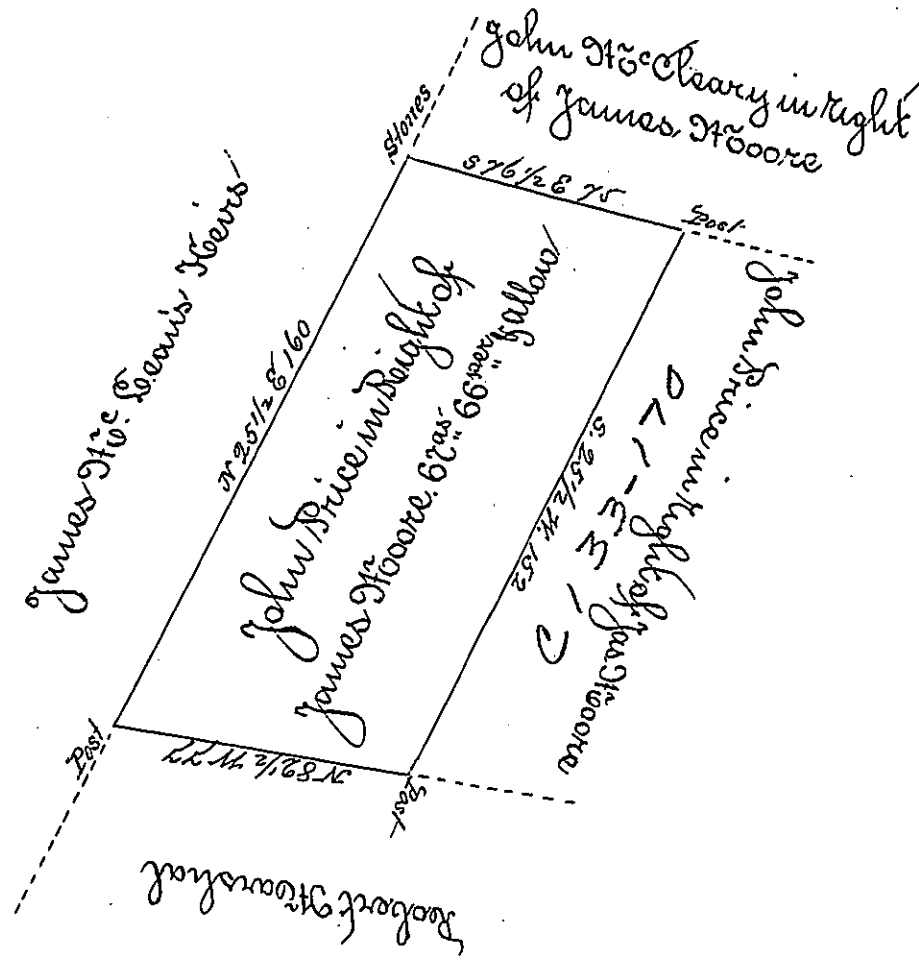 John McCleary in right
of James Moore
Stones
Post
James McLean's Heirs
N 25 1/2 E 160
John Price in Right of
James Moore. 67 as. 99 prs. & allow
S. 25 1/2 W. 152
C-33-170
John Price in right of
Jas Moore
Post
N 82 1/2 W 77
Post
Robert Marshal